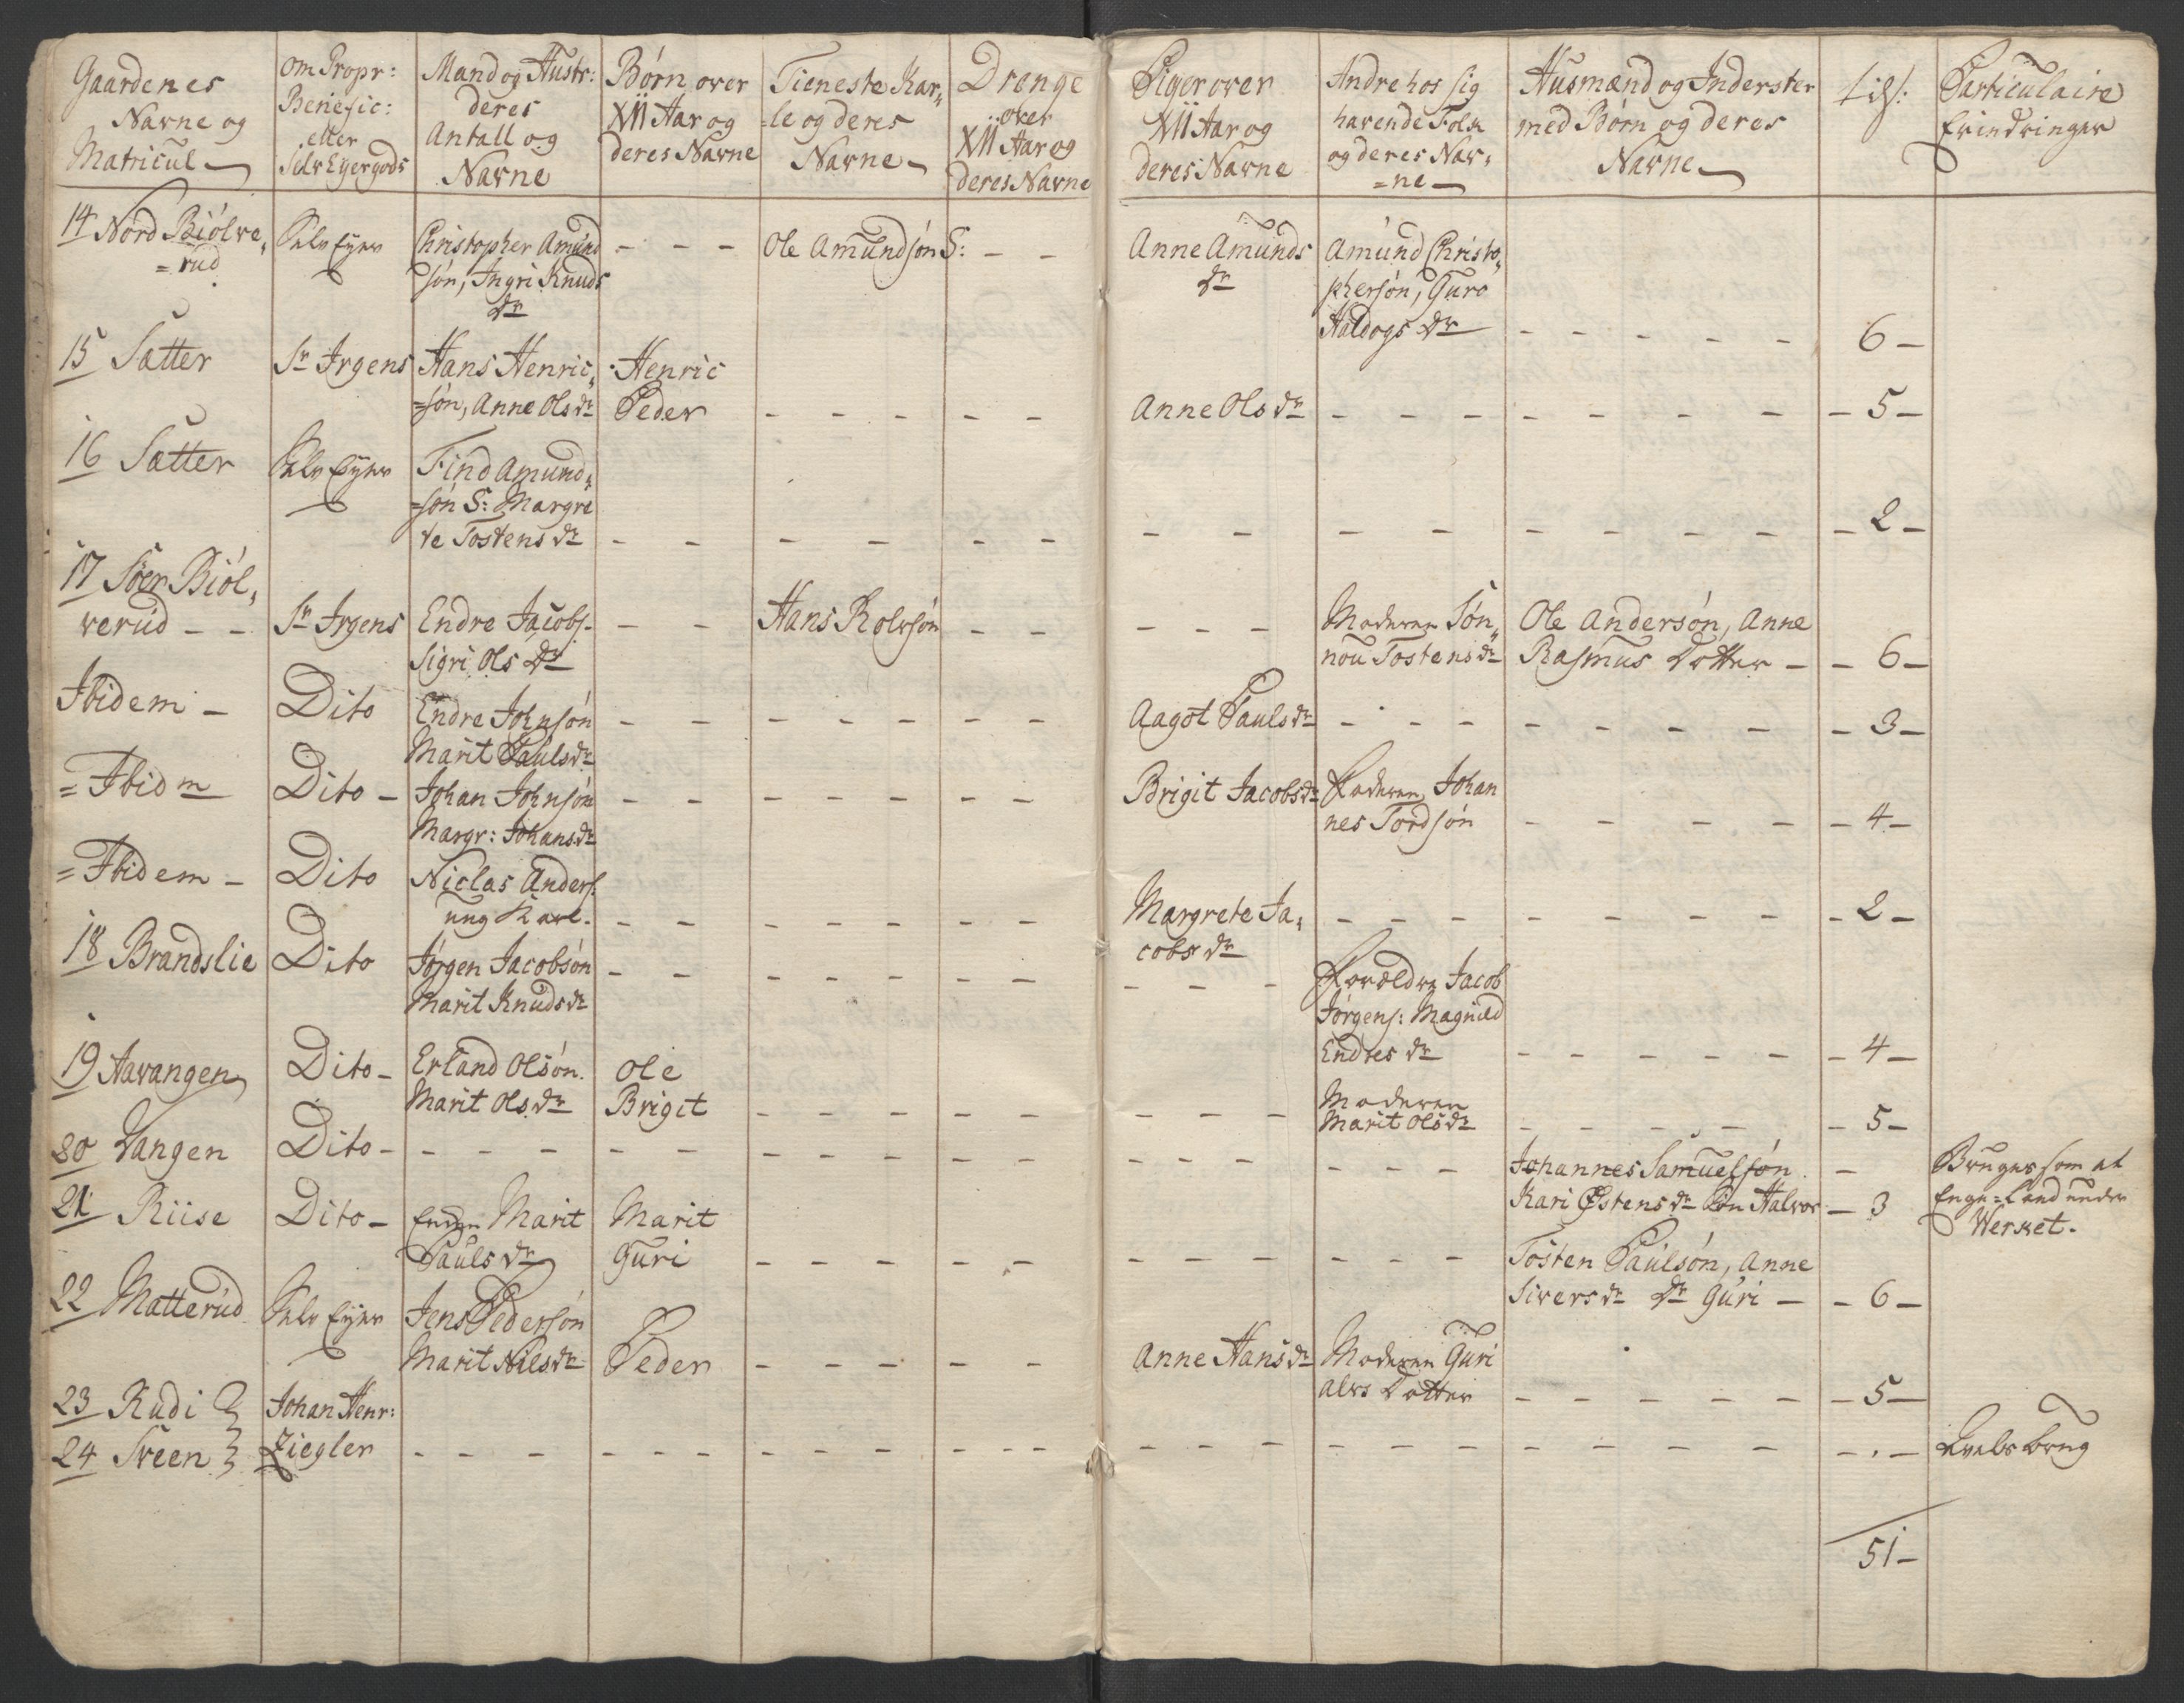 Gaardenes Navne og Matricul | Om Propr: Benefic: eller Selv Eyergods | Mand og Hustr: deres Antall og Navne | Børn over XII Aar og deres Navne | Tieneste Kar„ =le og deres Navne | Drenge over XII Aar og deres Navne | Piger over XII Aar og deres Navne | Andre hos sig havende Folk og deres Nav„ =ne | Husmænd og Inderster med Børn og deres Navne | tils: | Particulaire Erindringer
14 Nord Biölve„ =rud | Selv Eyer | Christopher Amund sön, Ingri Knuds dr | - - - | Ole Amundsön S: | - - | Anne Amunds dr | Amund Christo„ phersön, Guro Haldogs dr | - - - - - | 6 -
15 Sætter | Sr Irgens | Hans Henric„ =sön, Anne Ols dr | Henric Peder | - - - | - - | Anne Ols dr | - - - | - - - - | - 5 -
16 Sætter | Selv Eyer | Find Amund„ =sön S: Margre te Tostens dr | - - | - - | - - | - - | - - | - - - - | - 2 -
17 Söer Biöl„ verud - - | Sr Irgens | Endre Jacobs- Sigri Ols dr | - - | Hans Rolvsön | - - | - - - | Moderen Sön„ nou Tostens dr | Ole Andersön, Anne Rasmus Dotter - | - 6 -
Ibidem - | Dito | Endre Johnsön Marit Pauls dr | - - | - - - | - - | Aagot Pauls dr | - - - | - - - - | - 3 -
= Ibidm | Dito - | Johan Johnsön Margr: Johans dr | - - | - - - | - - | Brigit Jacobs dr | Faderen Johan nes Tordsön | - - - - | - 4 -
= Ibidem - | Dito | Niclas Anders: ung Karl. | - - | - - - | - - | Margrete Ja„ cobs dr | - - - | - - - - | - 2 -
18 Brandslie | Dito | Jörgen Jacobsön Marit Knuds dr | - - | - - - | - - | - - - | Forældre Jacob Jörgens: Magnild Endres dr | - - - - - | - 4 -
19 Aavangen | Dito - | Erland Olsön. Marit Ols dr | Ole Brigit | - - - | - - | - - - | Moderen Marit Ols dr | - - - - | - 5 -
20 Vangen | Dito - | - - - | - - | - - - | - - | - - - | - - - | Johannes Samuelsön Kari Östens dr Sön Halvor | - 3 | Bruges som et Enge=Land under Werket.
21 Riise | Dito - | Enken Marit Pauls dr | Marit Guri | - - - | - - | - - - | - - - | Tosten Paulsön, Anne Sivers dr Dr Guri - | - 6 -
22 Matterud | Selv Eyer | Jens Pedersön Marit Nils dr | Peder | - - - | - - | Anne Hans dr | Moderen Guri Alvs Dotter | - - - - - | - 5 -
23 Rudi
24 Sveen | Johan Henr: Ziegler | - - - | - - - | - - - | - - - | - - - | - - - | - - - - | - . - | Avelsbrug
51 -